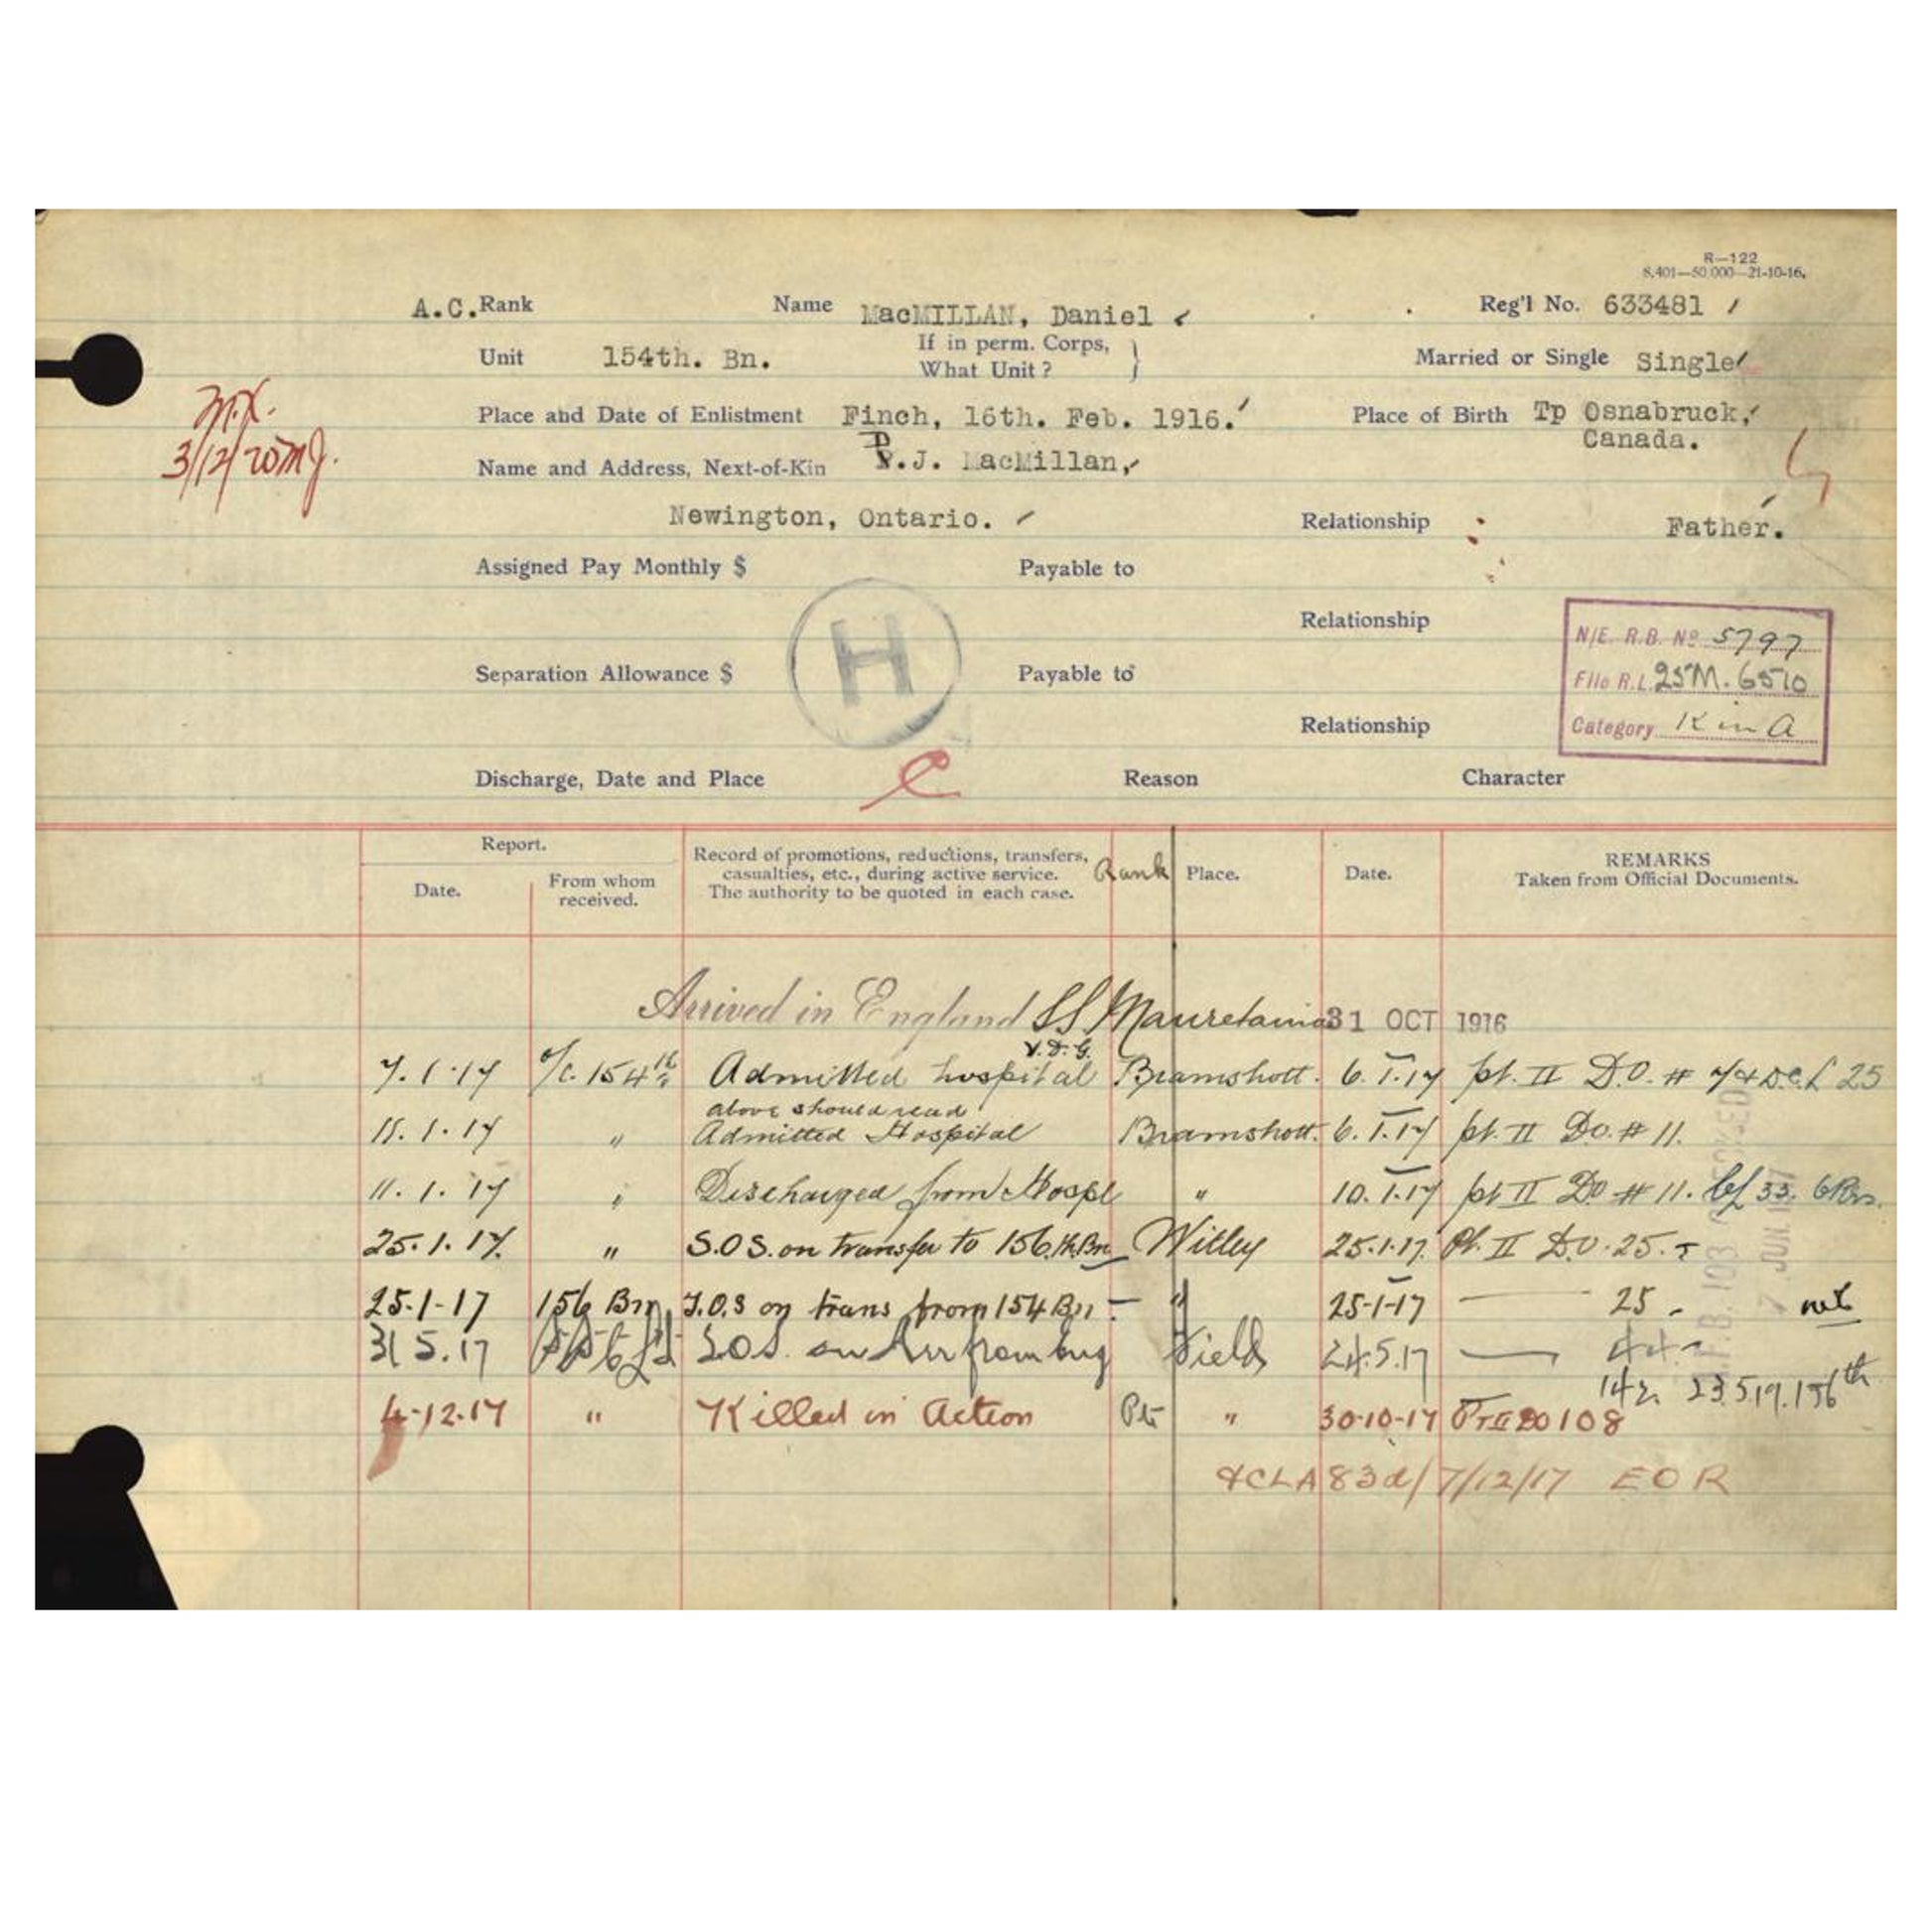 R—122
S.401—50,000—21-10-16.
A.C. Rank Name MacMILLAN, Daniel Reg'l No. 633481
Unit 154th. Bn. If in perm. Corps, What Unit? Married or Single Single
Place and Date of Enlistment Finch, 16th. Feb. 1916. Place of Birth Tp Osnabruck,
Canada.
3/12/20
Name and Address, Next-of-Kin D.J. MacMillan,
Newington, Ontario. Relationship Father.
Assigned Pay Monthly $ Payable to
Relationship
H
N/E. R.B. No 5797
File R.L. 25 M. 6510
Category K in A
Separation Allowance $ Payable to
Relationship
Discharge, Date and Place Reason Character
Report.
Date. From whom received. Record of promotions, reductions, transfers, casualties, etc., during active service. The authority to be quoted in each case. Rank Place. Date. REMARKS Taken from Official Documents.
Arrived in England SS Mauretania 31 OCT 1916
V.D.G.
7.1.17 O/C. 154th Admitted hospital Bramshott. 6.1.17 pt. II D.O. # 7
above should read
11.1.17 " Admitted Hospital Bramshott. 6.1.17 pt. II Do. # 11.
11.1.17 " Discharged from Hospl " 10.1.17 pt II Do # 11.
25.1.17. " S.O.S. on transfer to 156.th.Bn Witley 25.1.17. Pt. II D.O. 25.
25-1-17 156 Bn T.O.S on trans from 154 Bn - " 25-1-17 — 25
31 5.17 Field 24.5.17 — 44
23.5.17. 156th
4-12-17 " Killed in Action Pte " 30-10-17 Pt II DO 108
CLA 83d/ 7/12/17 EOR